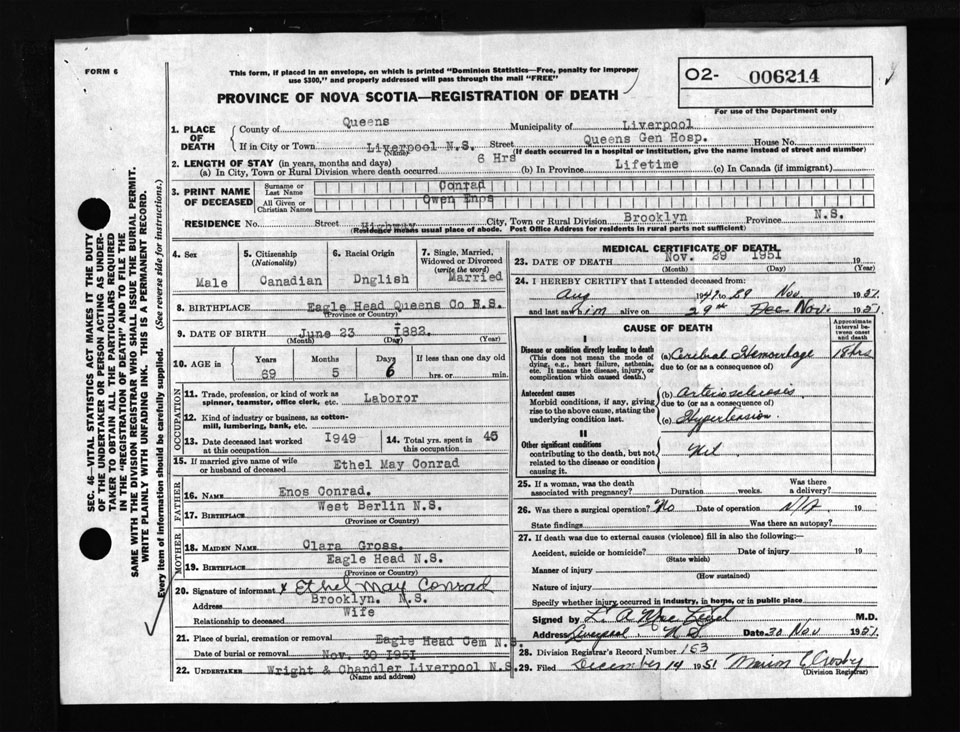 FORM 6
This form, if placed in an envelope, on which is printed "Dominion Statistics—Free, penalty for improper
use $300," and properly addressed will pass through the mail "FREE"
O2- 006214
PROVINCE OF NOVA SCOTIA—REGISTRATION OF DEATH
For use of the Department only
1. PLACE OF DEATH
County of Queens Municipality of Liverpool
If in City or Town Liverpool N.S. Street Queens Gen Hosp. House No.
(Name) (If death occurred in a hospital or institution, give the name instead of street and number)
2. LENGTH OF STAY (in years, months and days)
(a) In City, Town or Rural Division where death occurred 6 Hrs (b) In Province Lifetime (c) In Canada (if immigrant)
3. PRINT NAME OF DECEASED
Surname or Last Name Conrad
All Given or Christian Names Owen Enos
RESIDENCE No. Street Highway City, Town or Rural Division Brooklyn Province N.S.
(Residence means usual place of abode. Post Office Address for residents in rural parts not sufficient)
4. Sex Male
5. Citizenship (Nationality) Canadian
6. Racial Origin Dnglish
7. Single, Married, Widowed or Divorced (write the word) Married
8. BIRTHPLACE Eagle Head Queens Co N.S.
(Province or Country)
9. DATE OF BIRTH June 23 1882.
(Month) (Day)
10. AGE in Years Months Days If less than one day old
69 5 6 hrs. or min.
OCCUPATION
11. Trade, profession, or kind of work as spinner, teamster, office clerk, etc. Laboror
12. Kind of industry or business, as cotton-mill, lumbering, bank, etc.
13. Date deceased last worked at this occupation I949
14. Total yrs. spent in this occupation 45
15. If married give name of wife or husband of deceased Ethel May Conrad
FATHER
16. Name Enos Conrad.
17. Birthplace West Berlin N.S.
(Province or Country)
MOTHER
18. Maiden Name Clara Gross.
19. Birthplace Eagle Head N.S.
(Province or Country)
20. Signature of informant x Ethel May Conrad
Address Brooklyn. N.S.
Relationship to deceased Wife
21. Place of burial, cremation or removal Eagle Head Cem N.S.
Date of burial or removal Nov. 30 1951
22. UNDERTAKER Wright & Chandler Liverpool N.S.
(Name and address)
MEDICAL CERTIFICATE OF DEATH
23. DATE OF DEATH Nov. 29 1951 19
(Month) (Day) (Year)
24. I HEREBY CERTIFY that I attended deceased from:
Aug 1947 to 29 Nov 1951
and last saw him alive on 29th Dec Nov. 1951
CAUSE OF DEATH
Approximate interval between onset and death
I
Disease or condition directly leading to death
(This does not mean the mode of dying, e.g., heart failure, asthenia, etc. It means the disease, injury, or complication which caused death.)
(a) Cerebral Hemorrhage 18 hrs
due to (or as a consequence of)
Antecedent causes
Morbid conditions, if any, giving rise to the above cause, stating the underlying condition last.
(b) Arteriosclerosis
due to (or as a consequence of)
(c) Hypertension.
II
Other significant conditions
contributing to the death, but not related to the disease or condition causing it.
Nil
25. If a woman, was the death associated with pregnancy? Duration weeks. Was there a delivery?
26. Was there a surgical operation? No Date of operation N/A 19
State findings Was there an autopsy?
27. If death was due to external causes (violence) fill in also the following:—
Accident, suicide or homicide? Date of injury 19
(State which)
Manner of injury
(How sustained)
Nature of injury
Specify whether injury occurred in industry, in home, or in public place
Signed by M.D.
Address Liverpool N.S. Date 30 Nov 1951.
28. Division Registrar's Record Number 163
29. Filed December 14 1951 Marion E Crosby
(Division Registrar)
SEC. 46—VITAL STATISTICS ACT MAKES IT THE DUTY
OF THE UNDERTAKER OR PERSON ACTING AS UNDER-
TAKER TO OBTAIN ALL THE PARTICULARS REQUIRED
IN THE "REGISTRATION OF DEATH" AND TO FILE THE
SAME WITH THE DIVISION REGISTRAR WHO SHALL ISSUE THE BURIAL PERMIT.
WRITE PLAINLY WITH UNFADING INK. THIS IS A PERMANENT RECORD.
Every item of information should be carefully supplied. (See reverse side for instructions.)